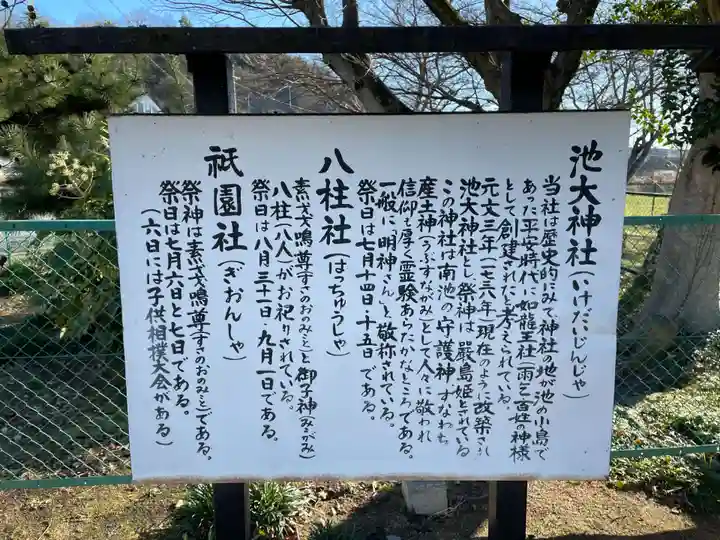 池大神社(いけだいじんじゃ)
当社は歴史的にみて神社の地が池の小島で
あった平安時代に如龍王社(雨乞百姓の神様
として)創建されたと考えられている。
元文三年(一七三八年)現在のように改築され
池大神社とし、祭神は、厳島姫とされている
この神社は南池の守護神、すなわち
産土神(うぶすながみ)として人々に敬われ
信仰も厚く霊験あらたかなところである。
一般に「明神さん」と敬称されている。
祭日は七月十四日・十五日である。
八柱社(はちゅうしゃ)
素戔鳴尊(すさのおのみこと)と御子神(みこがみ)
八柱(八人)がお祀りされている。
祭日は八月三十一日・九月一日である。
祇園社(ぎおんしゃ)
祭神は素戔鳴尊(すさのおのみこと)である。
祭日は七月六日と七日である。
(六日には子供相撲大会がある)